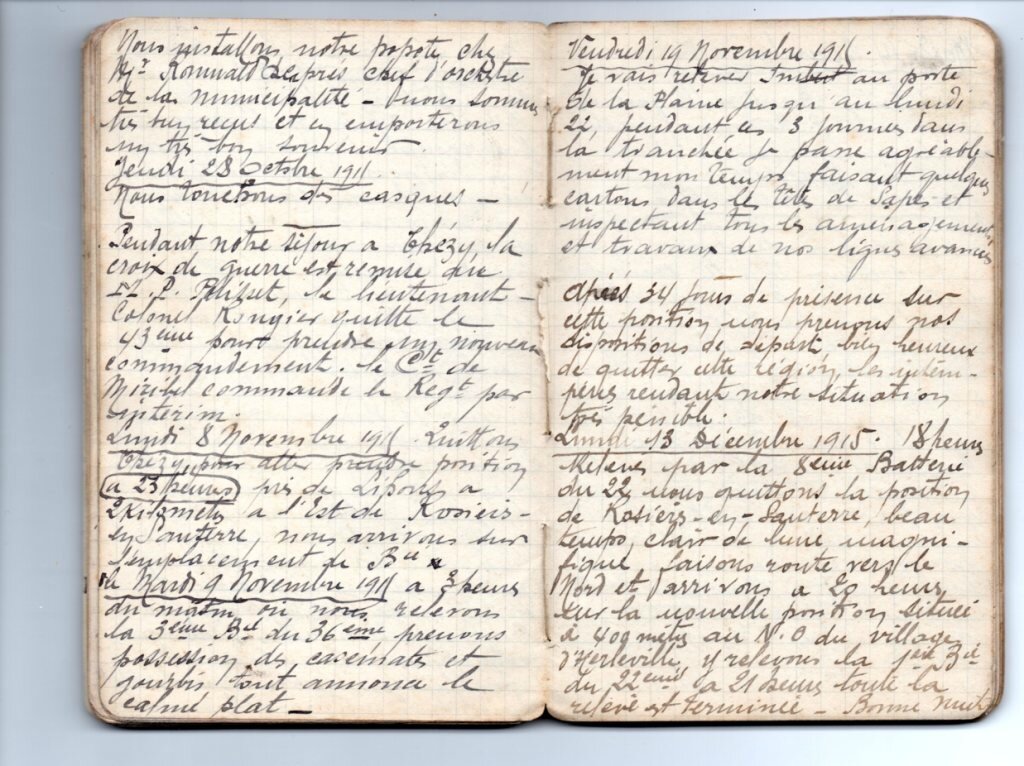 Nous installons notre popote chez
Mr Romuald Desprès chef d'orchestre
de la municipalité - nous sommes
très bien reçus et en emporterons
un très bon souvenir.
Jeudi 28 Octobre 191
Nous touchons des casques -
Pendant notre séjour a Thézy, la
croix de guerre est remise au
Lt. P. le lieutenant-
Colonel Rougier quitte le
43ème pour prendre un nouveau
commandement. le Ct de
Miribel commande le Regt par
interim.
Lundi 8 Novembre 191 . Quittons
Thézy pour aller prendre position
a 23 heures près de Lihons a
2 Kilomets a l'Est de Rosieis-
en Santerre, nous arrivons sur
l'emplacement de Bie
le Mardi 9 Novembre 191 a 3 heures
du matin où nous relevons
la 3ème Bie du 36ème prenons
possession des casemates et
gourbis tout annonce le
calme plat -
Vendredi 19 Novembre 191 .
Je vais relever Imbert au poste
de la Plaine jusqu'au lundi
22, pendant ces 3 journées dans
la tranchée je passe agréable-
ment mon temps faisant quelques
cartons dans les têtes de Sapes et
inspectant tous les amenagements
et travaux de nos lignes avancées
après 34 jours de présence sur
cette position nous prenons nos
dispositions de départ bien heureux
de quitter cette région, les intem-
péries rendant notre situation
très penible.
Lundi 13 Décembre 1915. 18 heures
Relevés par la 8eme Batterie
du 22, nous quittons la position
de Rosieis-en-Santerre, beau
temps, clair de lune magni-
fique, faisons route vers le
Nord et arrivons a 20 heures
sur la nouvelle position située
à 400 mets au N.O du village
d'Herleville, y relevons la 1ere Bie
du 22eme a 21 heures toute la
relève est terminée - Bonne nuit